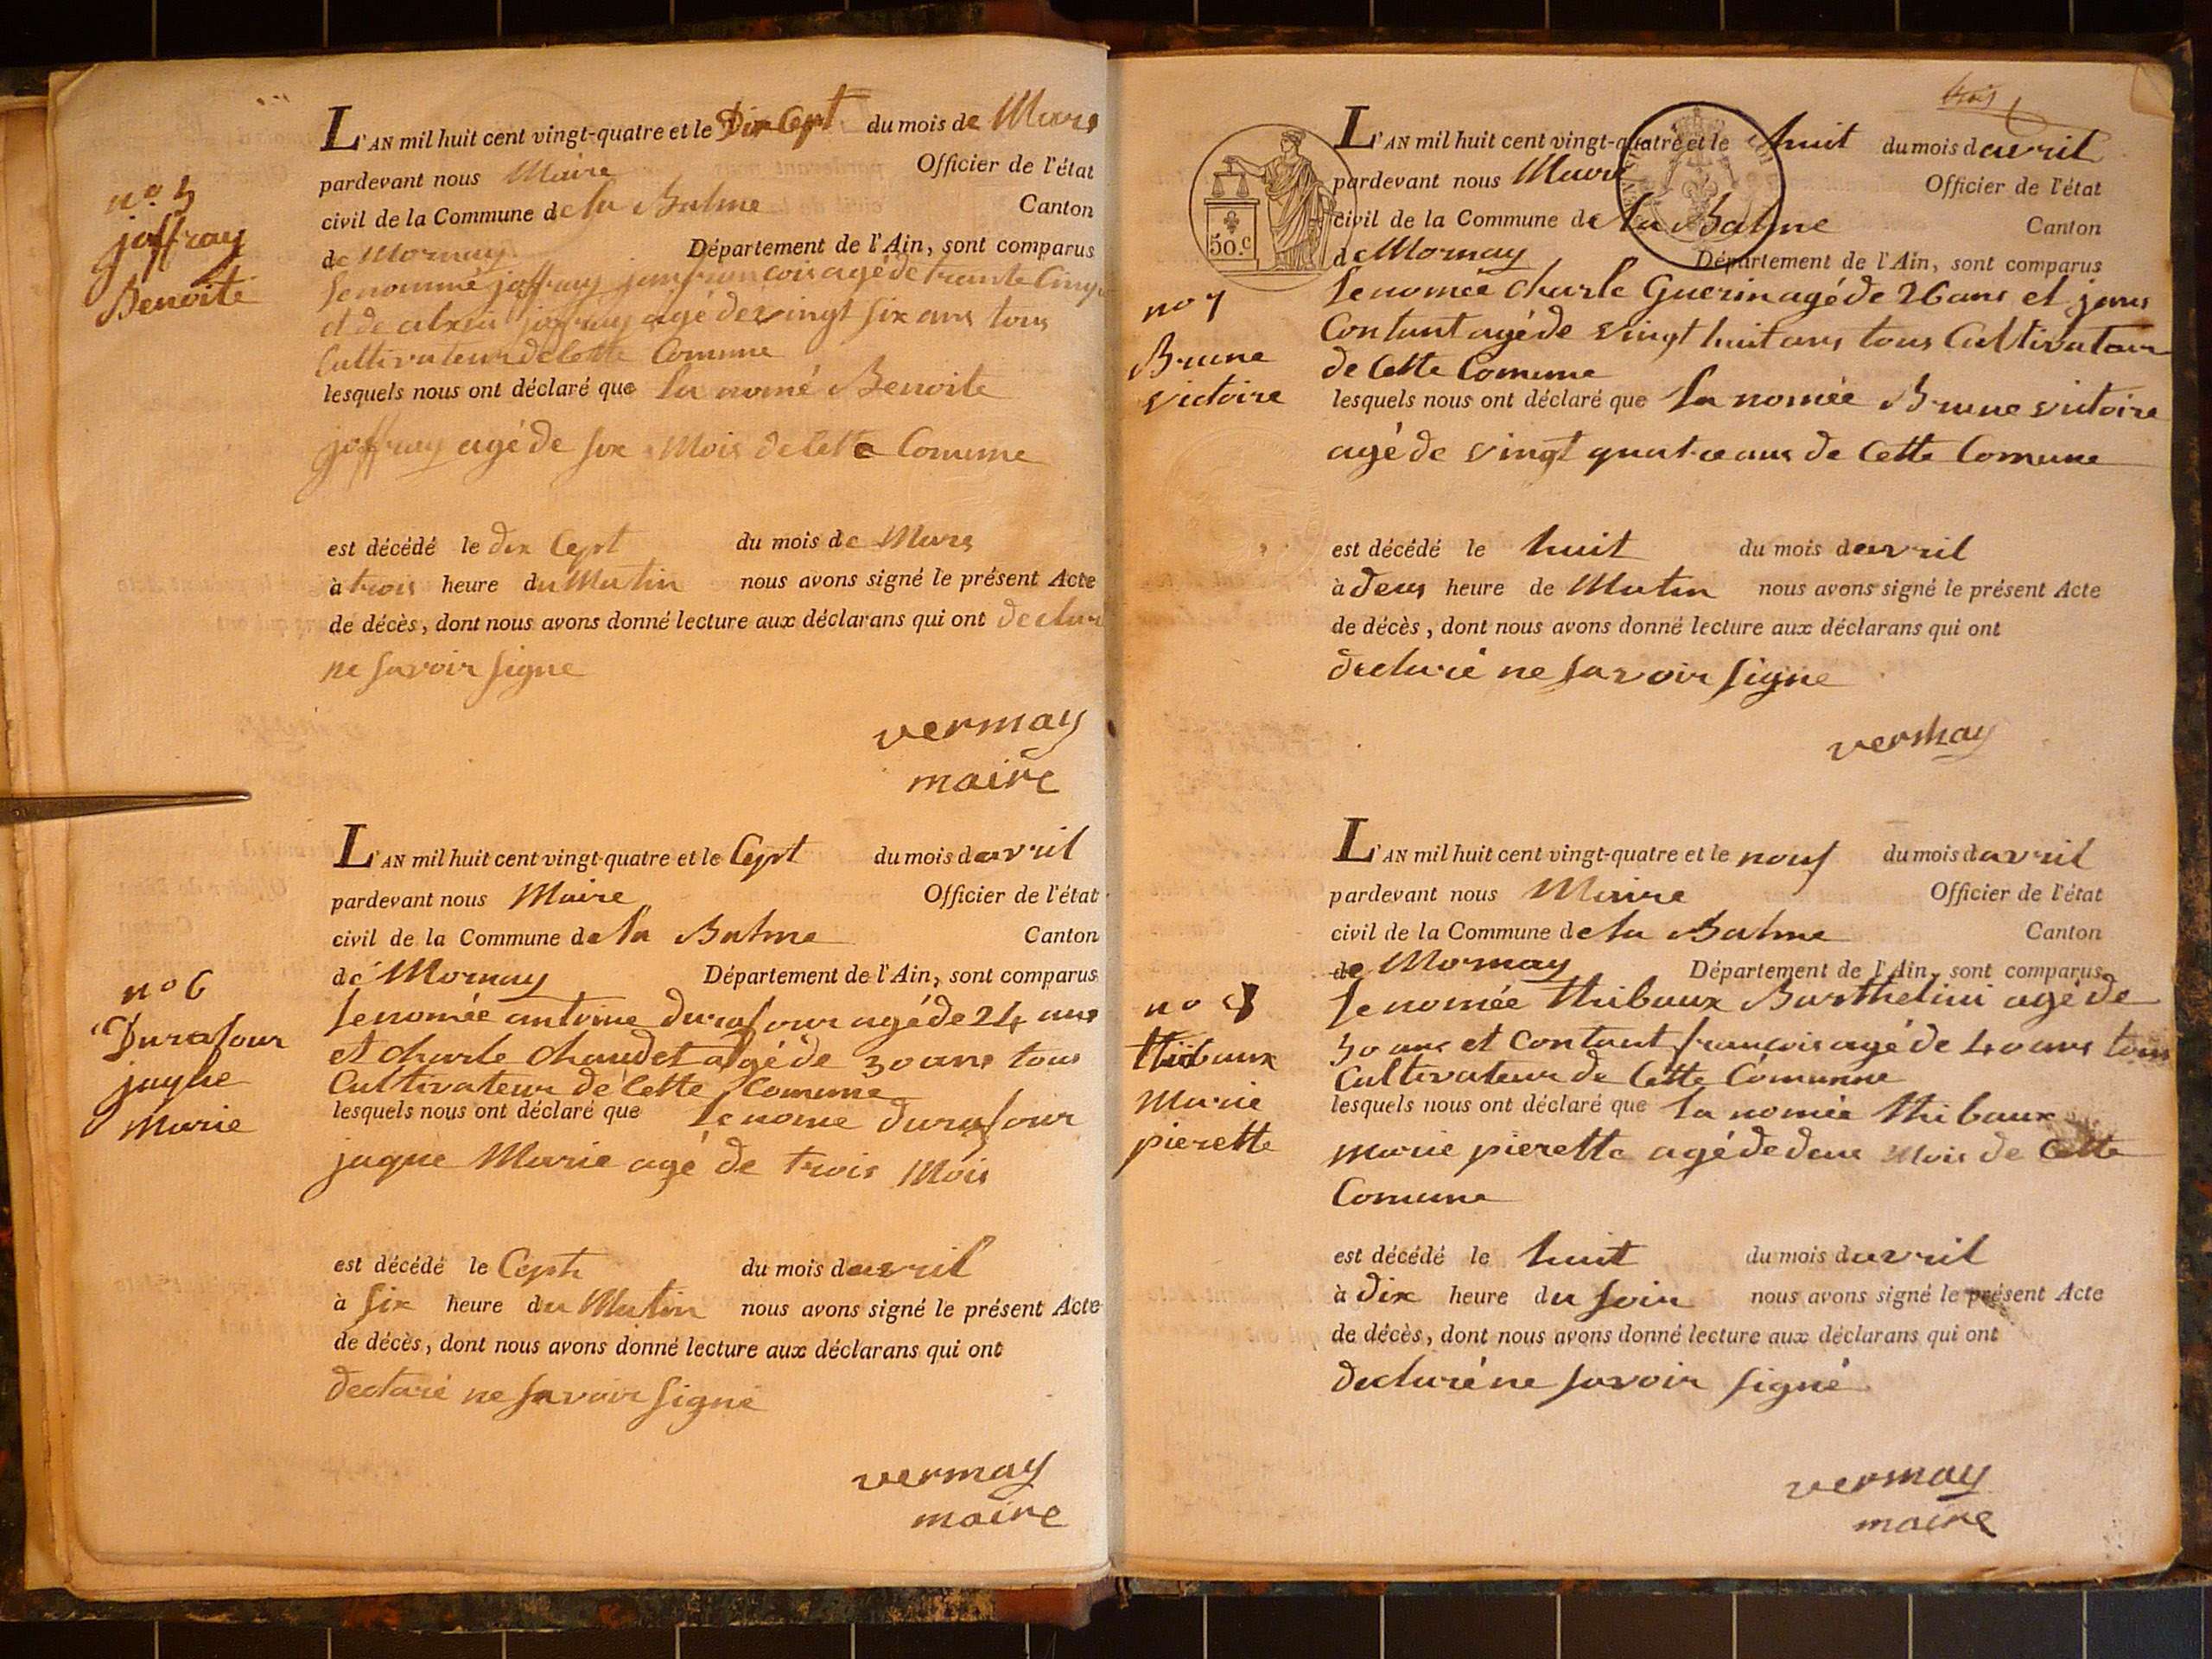 L'AN mil huit cent vingt-quatre et le Dix Cept du mois de Mars
pardevant nous Maire Officier de l'état
civil de la Commune de la Balme Canton
de Mornay Département de l'Ain, sont comparus
no 5
joffray
Benoite
le nommé joffray jean francois agé de trante Cinq
et de alexis joffray agé de vingt six ans tous
Cultivateur de Cette Comune
lesquels nous ont déclaré que la nomé Benoite
joffray agé de six Mois de Cette Comune
est décédé le dix Cept du mois de Mars
à trois heure du Matin nous avons signé le présent Acte
de décès, dont nous avons donné lecture aux déclarans qui ont declar
ne savoir signe
vermay
maire
L'AN mil huit cent vingt-quatre et le Cept du mois davril
pardevant nous Maire Officier de l'état
civil de la Commune de la Balme Canton
de Mornay Département de l'Ain, sont comparus
no 6
Durafour
jaque
Marie
le nomée antoine durafour agé de 24 ans
et charle chaudet agé de 30 ans tous
Cultivateur de Cette Comune
lesquels nous ont déclaré que le nome durafour
jaque Marie agé de trois Mois
est décédé le Cept du mois davril
à six heure du Matin nous avons signé le présent Acte
de décès, dont nous avons donné lecture aux déclarans qui ont
declaré ne savoir signé
vermay
maire
trois
L'AN mil huit cent vingt-quatre et le huit du mois davril
pardevant nous Maire Officier de l'état
civil de la Commune de la Balme Canton
50.c
de Mornay Département de l'Ain, sont comparus
no 7
Brune
victoire
le nomée charle Guerin agé de 26 ans et
Contant agé de vingt huit ans tous Cultivateur
de Cette Comune
lesquels nous ont déclaré que la nomée Brune victoire
agé de vingt quatre ans de Cette Comune
est décédé le huit du mois davril
à deus heure de Matin nous avons signé le présent Acte
de décès, dont nous avons donné lecture aux déclarans qui ont
declaré ne savoir signe
vermay
L'AN mil huit cent vingt-quatre et le nouf du mois davril
pardevant nous Maire Officier de l'état
civil de la Commune de la Balme Canton
de Mornay Département de l'Ain, sont comparus
no 8
thibaux
Marie
pierette
le nomée thibaux Barthelmi agé de
30 ans et Contant francois agé de 40 ans tous
Cultivateur de Cette Comune
lesquels nous ont déclaré que la nomée thibaux
marie pierette agé de deus Mois de Cette
Comune
est décédé le huit du mois davril
à dix heure du soir nous avons signé le présent Acte
de décès, dont nous avons donné lecture aux déclarans qui ont
declaré ne savoir signé
vermay
maire